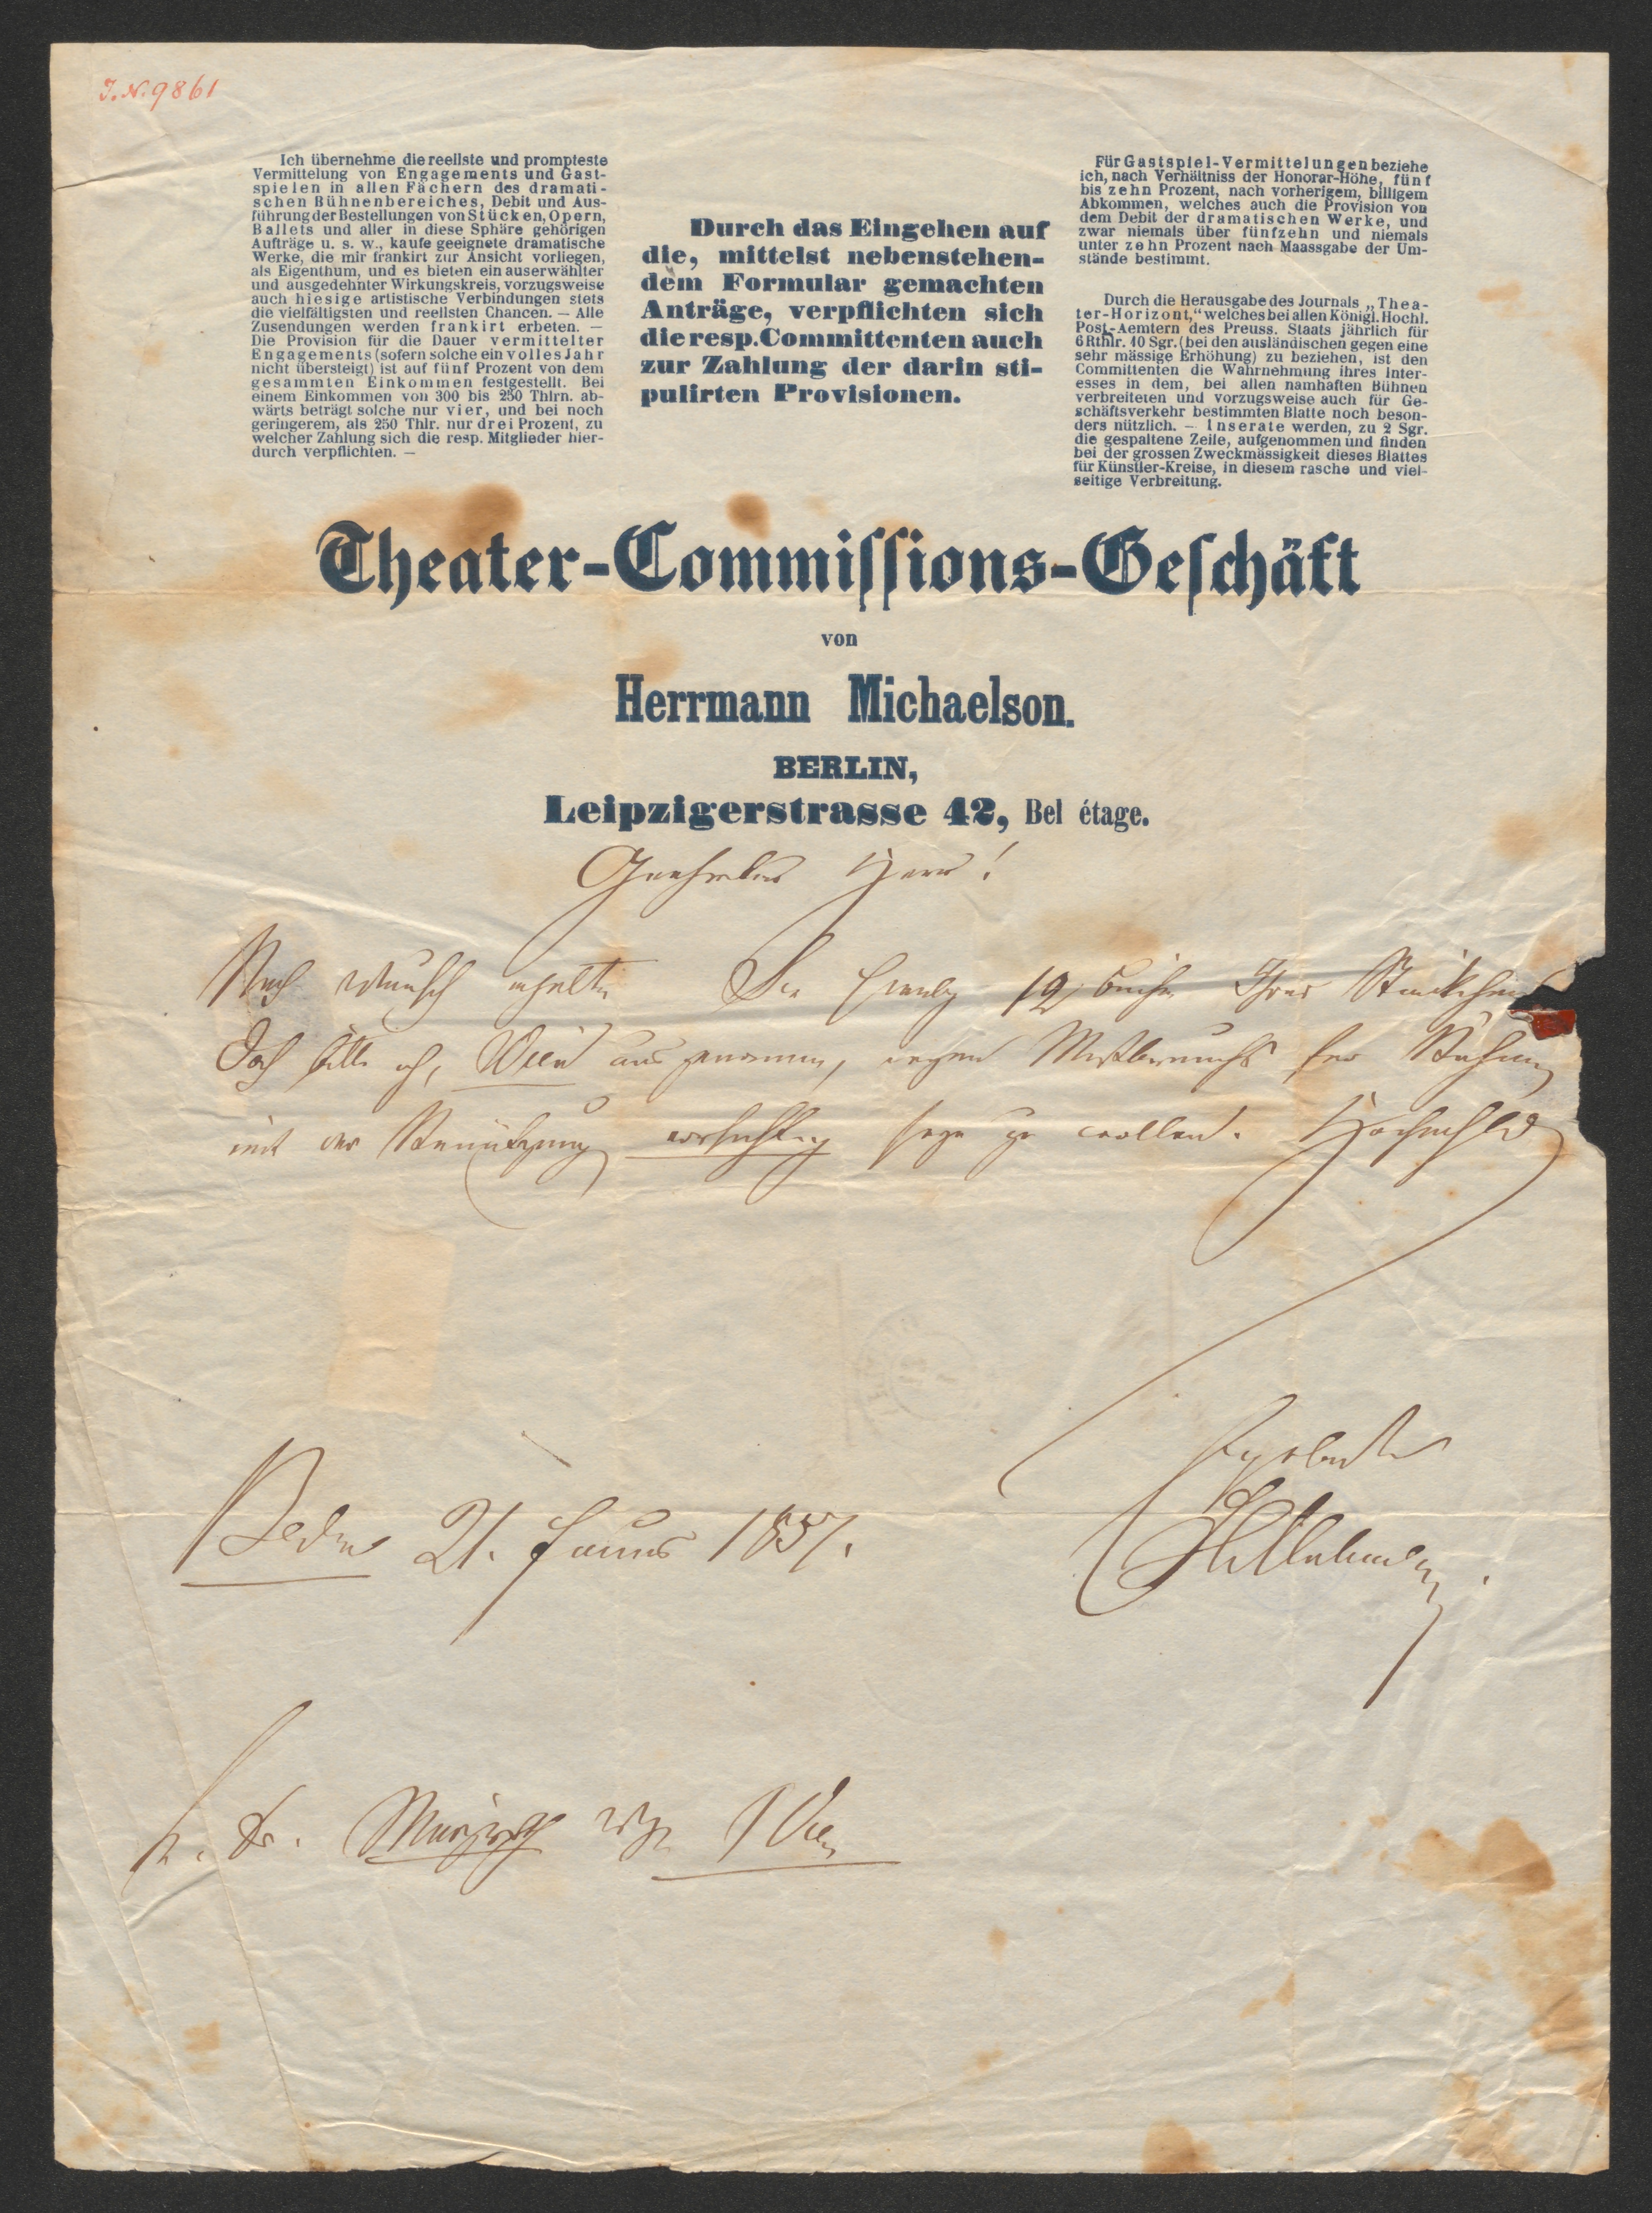 J. N. 9861
Ich übernehme die reellste und prompteste
Vermittelung von Engagements und Gast-
spielen in allen Fächern des dramati-
schen Bühnenbereiches, Debit und Aus-
führung der Bestellungen von Stücken, Opern,
Ballets und aller in diese Sphäre gehörigen
Aufträge u. s. w., kaufe geeignete dramatische
Werke, die mir frankirt zur Ansicht vorliegen,
als Eigenthum, und es bieten ein auserwählter
und ausgedehnter Wirkungskreis, vorzugsweise
auch hiesige artistische Verbindungen stets
die vielfältigsten und reellsten Chancen. — Alle
Zusendungen werden frankirt erbeten. —
Die Provision für die Dauer vermittelter
Engagements (sofern solche ein volles Jahr
nicht übersteigt) ist auf fünf Prozent von dem
gesammten Einkommen festgestellt. Bei
einem Einkommen von 300 bis 250 Thlrn. ab-
wärts beträgt solche nur vier, und bei noch
geringerem, als 250 Thlr. nur drei Prozent, zu
welcher Zahlung sich die resp. Mitglieder hier-
durch verpflichten. —
Durch das Eingehen auf
die, mittelst nebenstehen-
dem Formular gemachten
Anträge, verpflichten sich
die resp. Committenten auch
zur Zahlung der darin sti-
pulirten Provisionen.
Für Gastspiel-Vermittelungen beziehe
ich, nach Verhältniss der Honorar-Höhe, fünf
bis zehn Prozent, nach vorherigem, billigem
Abkommen, welches auch die Provision von
dem Debit der dramatischen Werke, und
zwar niemals über fünfzehn und niemals
unter zehn Prozent nach Maassgabe der Um-
stände bestimmt.
Durch die Herausgabe des Journals „Thea-
ter-Horizont,“ welches bei allen Königl. Hochl.
Post-Aemtern des Preuss. Staats jährlich für
6 Rthlr. 10 Sgr. (bei den ausländischen gegen eine
sehr mässige Erhöhung) zu beziehen, ist den
Committenten die Wahrnehmung ihres Inter-
esses in dem, bei allen namhaften Bühnen
verbreiteten und vorzugsweise auch für Ge-
schäftsverkehr bestimmten Blatte noch beson-
ders nützlich. — Inserate werden, zu 2 Sgr.
die gespaltene Zeile, aufgenommen und finden
bei der grossen Zweckmässigkeit dieses Blattes
für Künstler-Kreise, in diesem rasche und viel-
seitige Verbreitung.
Theater-Commissions-Geschäft
von
Herrmann Michaelson.
BERLIN,
Leipzigerstrasse 42, Bel étage.
Geehrter Herr!
Nach Wunsch erhalten Sie 12 Bücher Ihres
Doch bitte ich, Wien ausgenommen, wegen Mißbrauchs
mit der vorsichtig sein zu wollen.
Berlin 21. 1857.
Wien